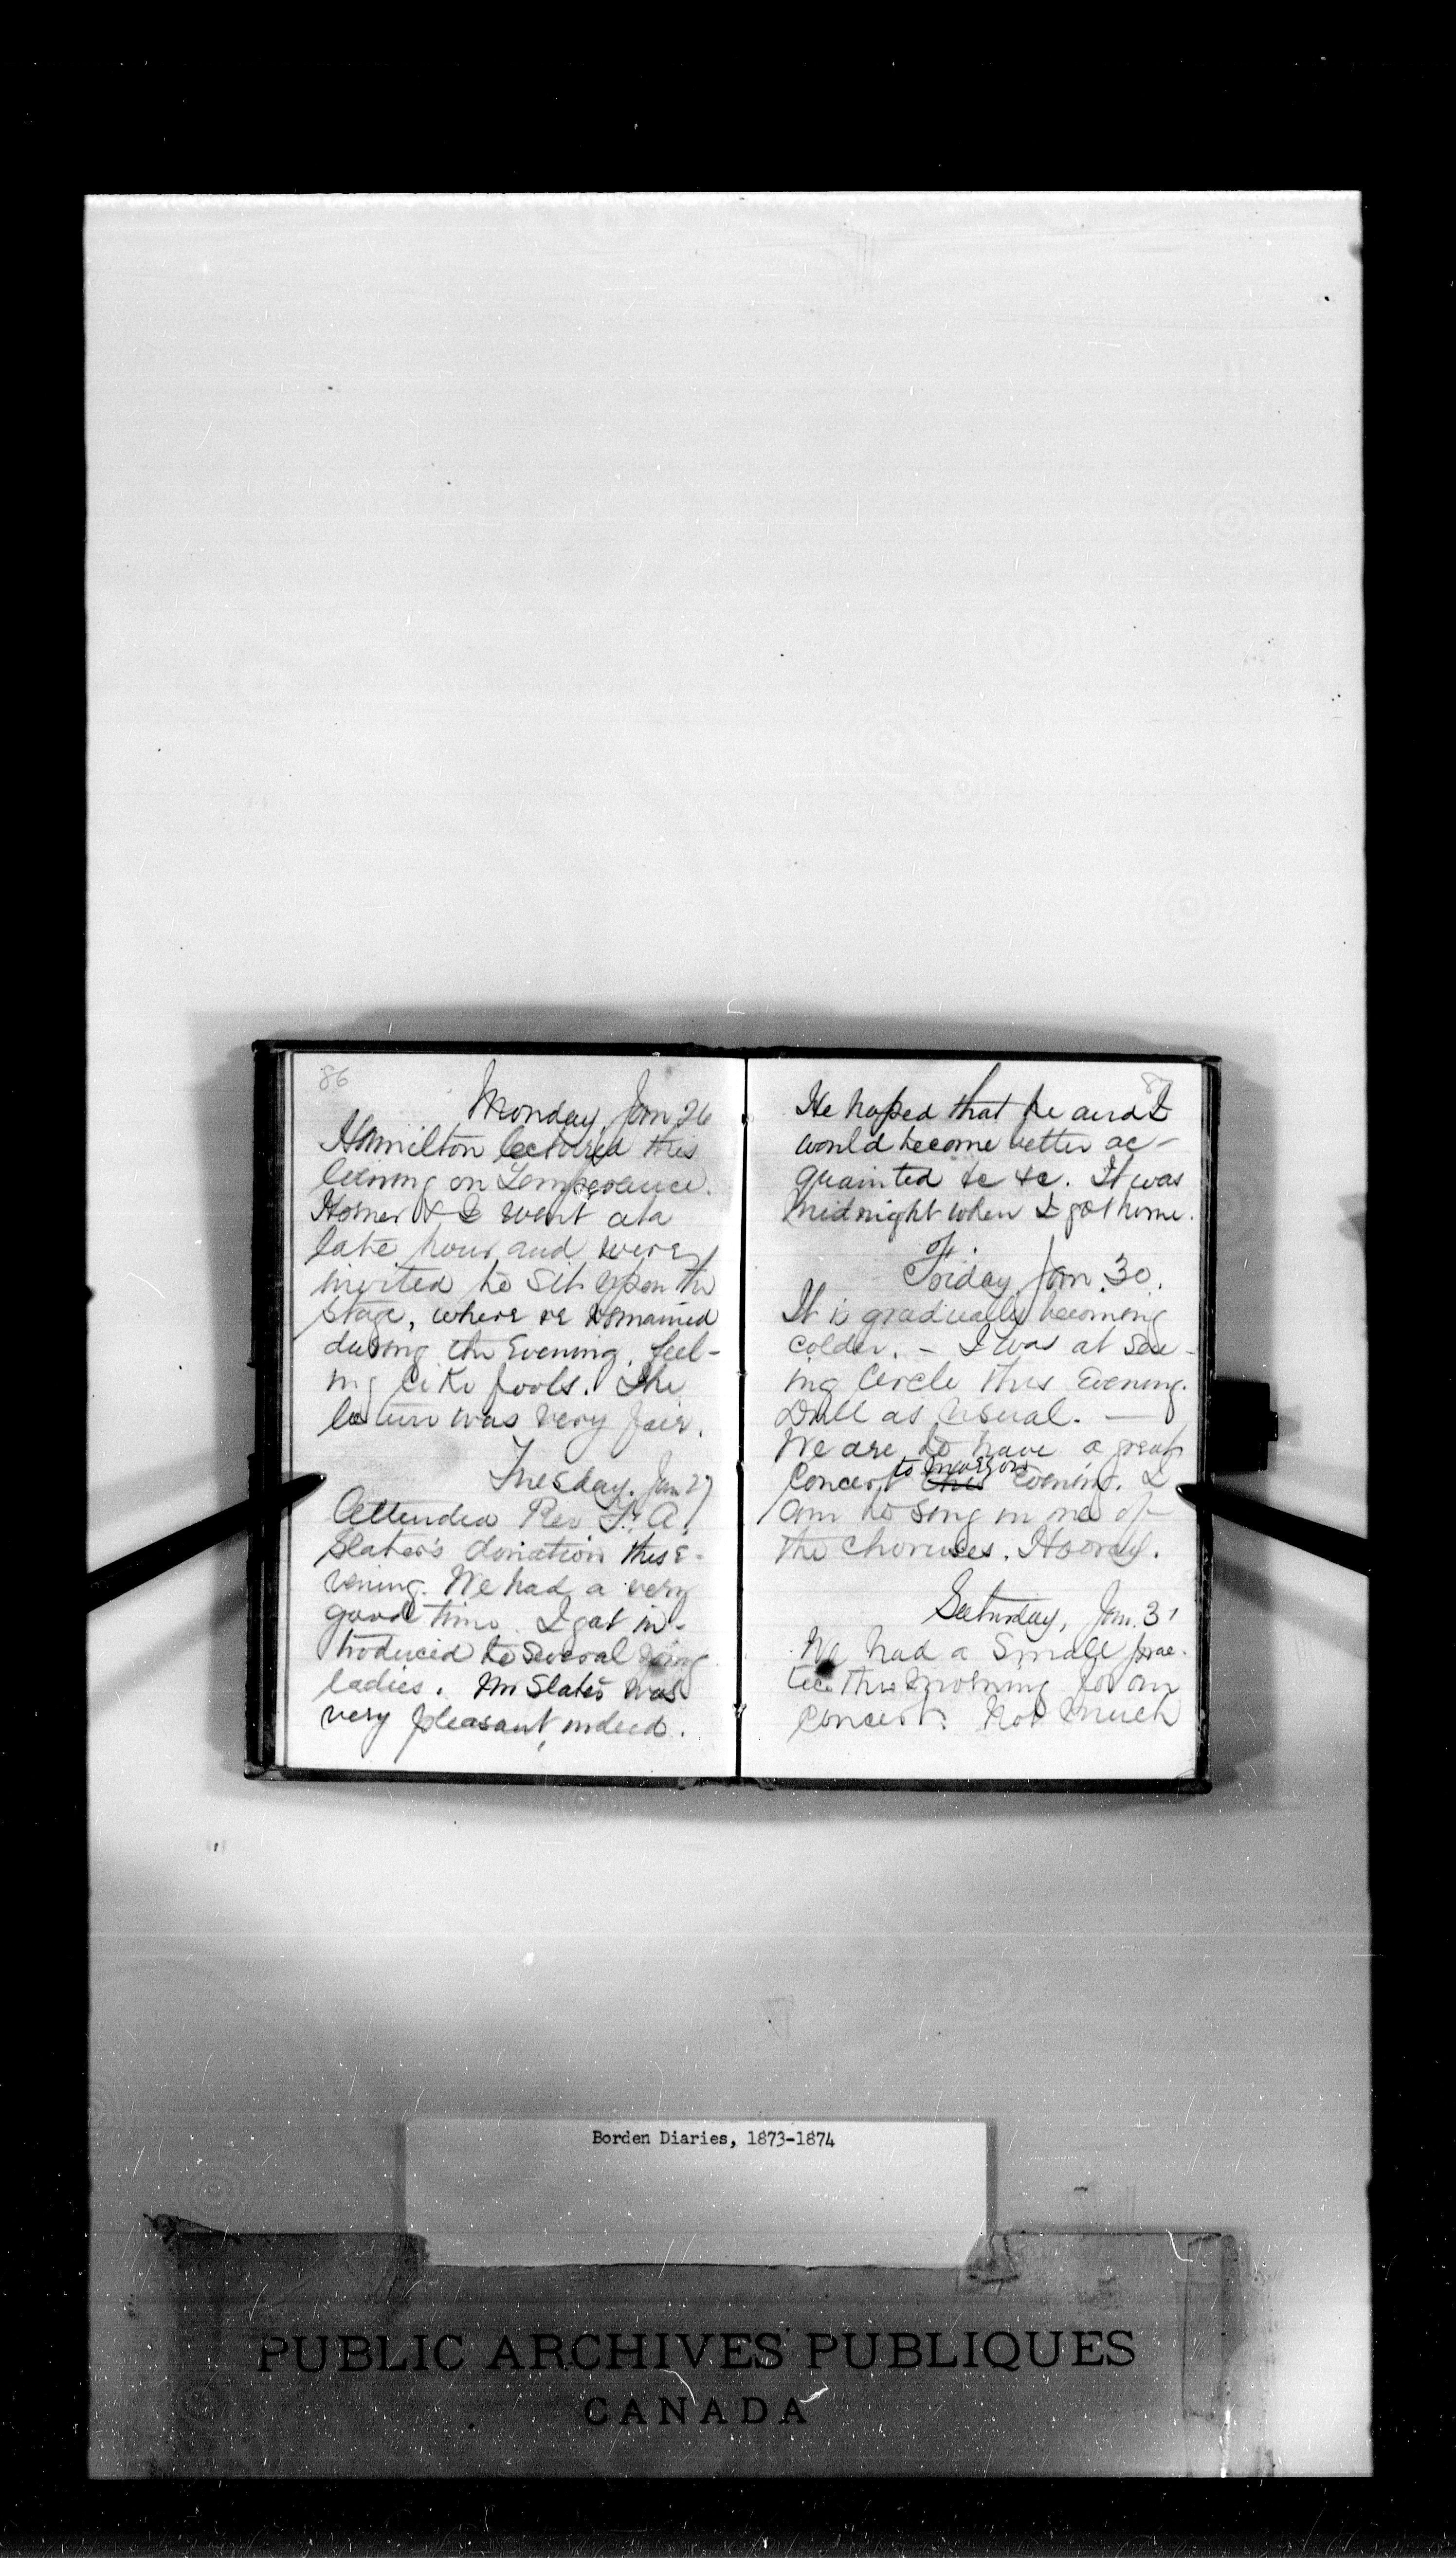 86
Monday, Jan 26
Hamilton lectured this
Evening on Temperance.
Horner & I went at a
late hour and were
invited to sit upon the
stage, where we remained
during the Evening, feel-
ing like fools. The
lecture was very fair.
Tuesday. Jan 27
Attended Rev F. A.
Slater's donation this E-
vening. We had a very
good time. I got in-
troduced to several young
ladies. Mr Slater was
very pleasant, indeed.
He hoped that he and I
would become better ac-
quainted &c &c. It was
midnight when I got home.
Friday, Jan. 30.
It is gradually becoming
colder. - I was at Sew-
ing Circle this Evening.
Dull as usual. —
We are to have a great
to morrow
Concert this Evening. I
am to sing in one of
the choruses. Hooray.
Saturday, Jan. 31
We had a small prac-
tice this morning for our
Concert. Not much
Borden Diaries, 1873-1874
PUBLIC ARCHIVES PUBLIQUES
CANADA